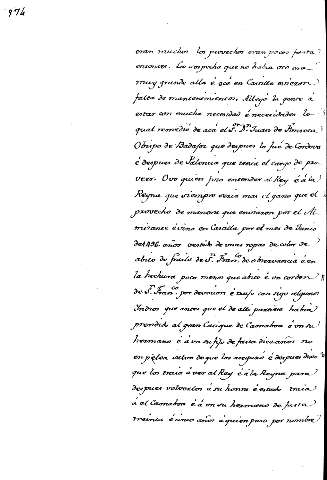 974
eran muchos los provechos eran pocos fasta
entonces. La sospecha que no havia oro era
muy grande allá é acá en Castilla é tizon
falta de mantenimientos. Allegó la gente á
estar con mucha necesidad é necesidades lo
qual remedió de acá el S.r D.n Juan de Fonseca
Obispo de Badajoz que despues lo fué de Cordova
é despues de Palencia que tenia el cargo de pro
veer. Ovo quien fizo entender al Rey é á la
Reyna que siempre seria mas el gasto que el
provecho de manera que enviaron por el Al
mirante é vino en Castilla por el mes de Junio
de 1496 años vestido de unas ropas de color de
abito de fraile de S.n Fran.co de observancia é en
la hechura poco menos que abito é un cordon
de S.n Fran.co por devocion é trujo con sigo algunos
Indios que antes que el de allá partiese havia
prendido al gran Cacique de Caonaboa é á un su
hermano é á un su fijo de fasta diez años no
en pelea salvo de que los aseguró é despues dixo
que los traia á ver al Rey é á la Reyna para
despues volverlos á su honra é estado traia
á el Caonaboa é á un su hermano de fasta
treinta é cinco años á quien puso por nombre